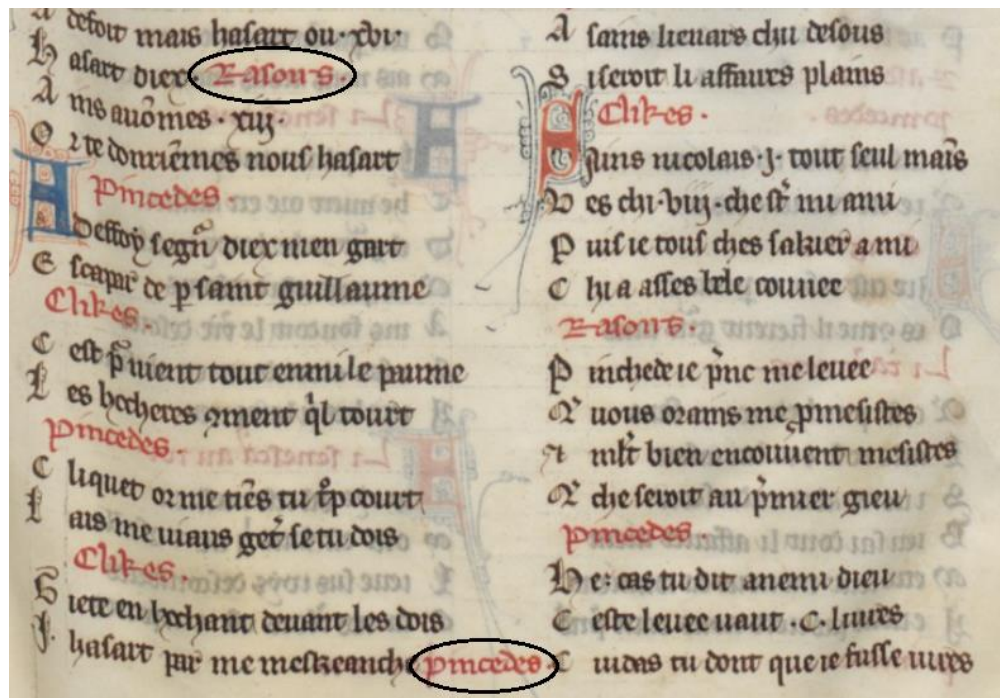 defoit mais hasart ou .xvi.
H asart diex Rasons
A ins auomes .xiij
O r te donriemes nous hasart
Pincedes.
A deffoy segn̄r diex men gart
E scapar de p saint guillaume
Clikes.
C est p nient tout enmi le paume
L es hocheres ꝯment ql court
Pincedes.
C liquet or me tiēs tu trop court
L ais me uiaus get se tu dois
Clikes.
G iete en hochant deuant les dois
J. hasart par me meskeanche Pincedes.
A sains lieuars chu desous
S i seroit li affaires plains
Clikes.
A suns nicolais .j. tout seul mais
V es chi .viij. che st mi ami
P uis ie tous ches sakier a mi
C hi a asses bele couuee
Rasons.
P inchede ie p̄nc me leuee
Q uous orains me ꝓmesistes
⁊ mlt bien encouuent mesistes
Q che seroit au p̄mier gieu
Pincedes.
H e: cas tu dit anemi dieu
C este leuee uaut .C. liures
C uidas tu dont que ie fusse iures